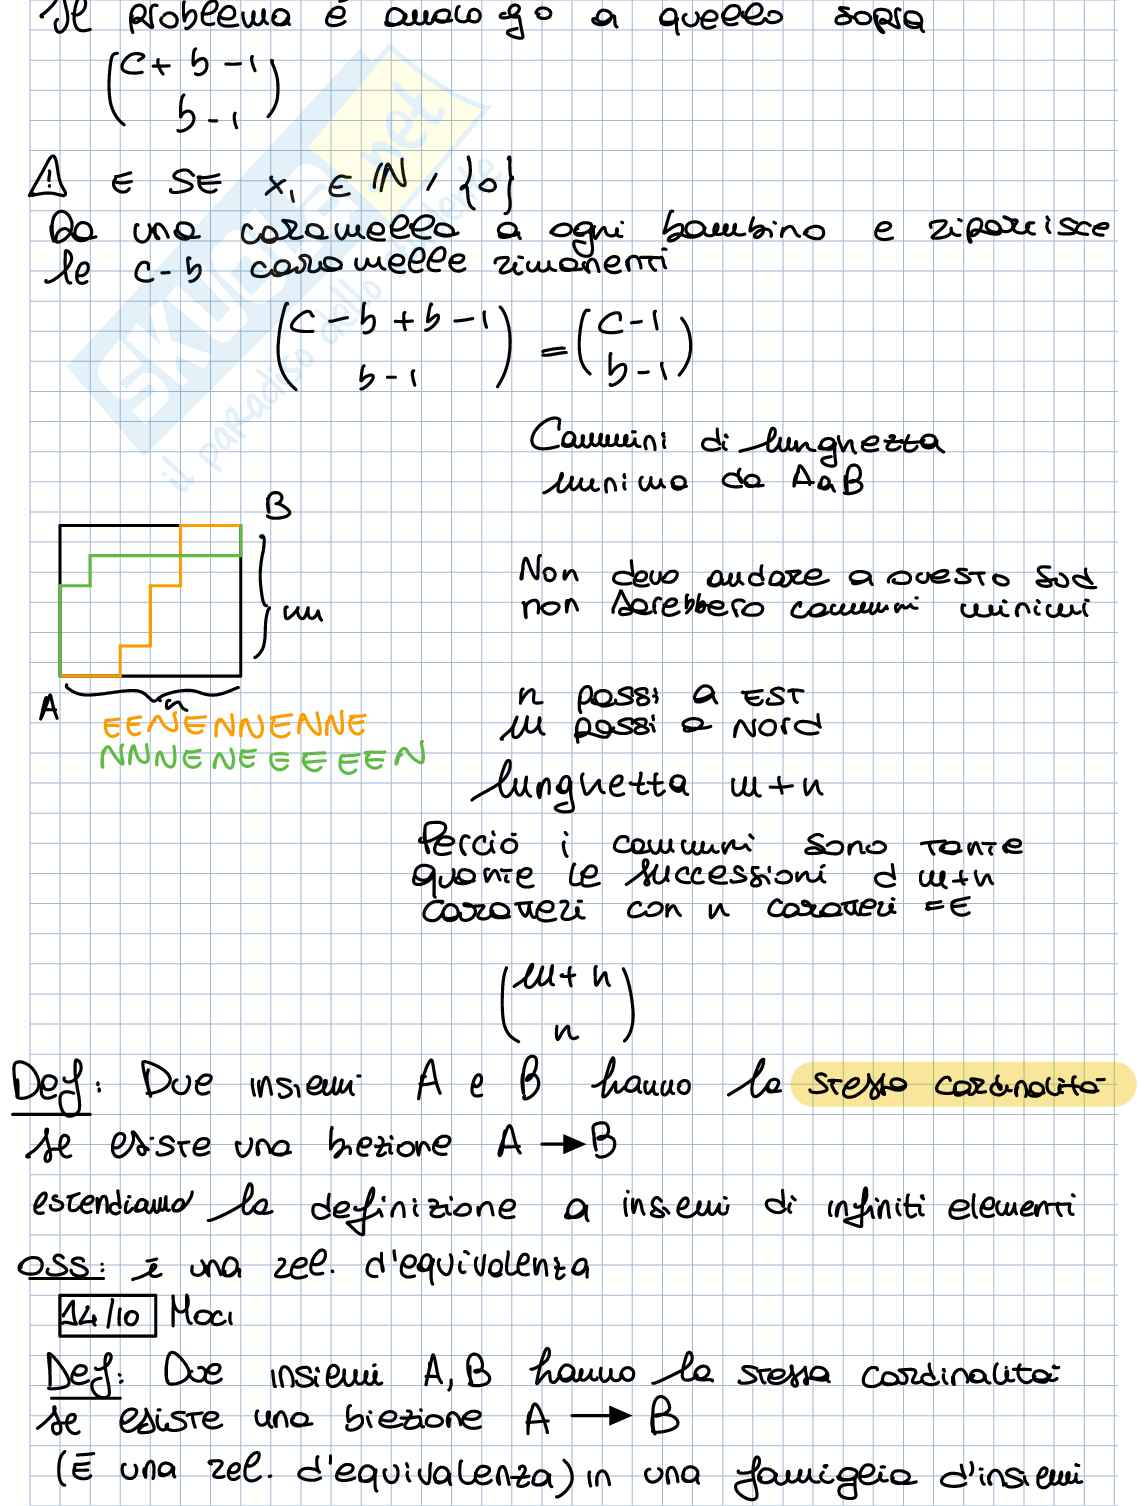 Il problema è analogo a quello sopra
(c + b - 1
b - 1)
⚠ E SE x₁ ∈ ℕ \ {0}
Da una caramella a ogni bambino e ripartisce
le c-b caramelle rimanenti
(c - b + b - 1
b - 1) = (c - 1
b - 1)
Cammini di lunghezza
minima da A a B
B
Non devo andare a ovest o sud
non sarebbero cammini minimi
m
n passi a EST
A
n
m passi a NORD
EENENNENNE
NNNENEEEEEN
lunghezza m+n
Perciò i cammini sono tante
quante le successioni d m+n
caratteri con n caratteri = E
(m + n
n)
Def: Due insiemi A e B hanno la stessa cardinalità
se esiste una biezione A → B
estendiamo la definizione a insiemi di infiniti elementi
OSS: è una rel. d'equivalenza
14/10 Moci
Def: Due insiemi A, B hanno la stessa cardinalità
se esiste una biezione A → B
(È una rel. d'equivalenza) in una famiglia d'insiemi
SKUOLA.net
il paradiso dello studente